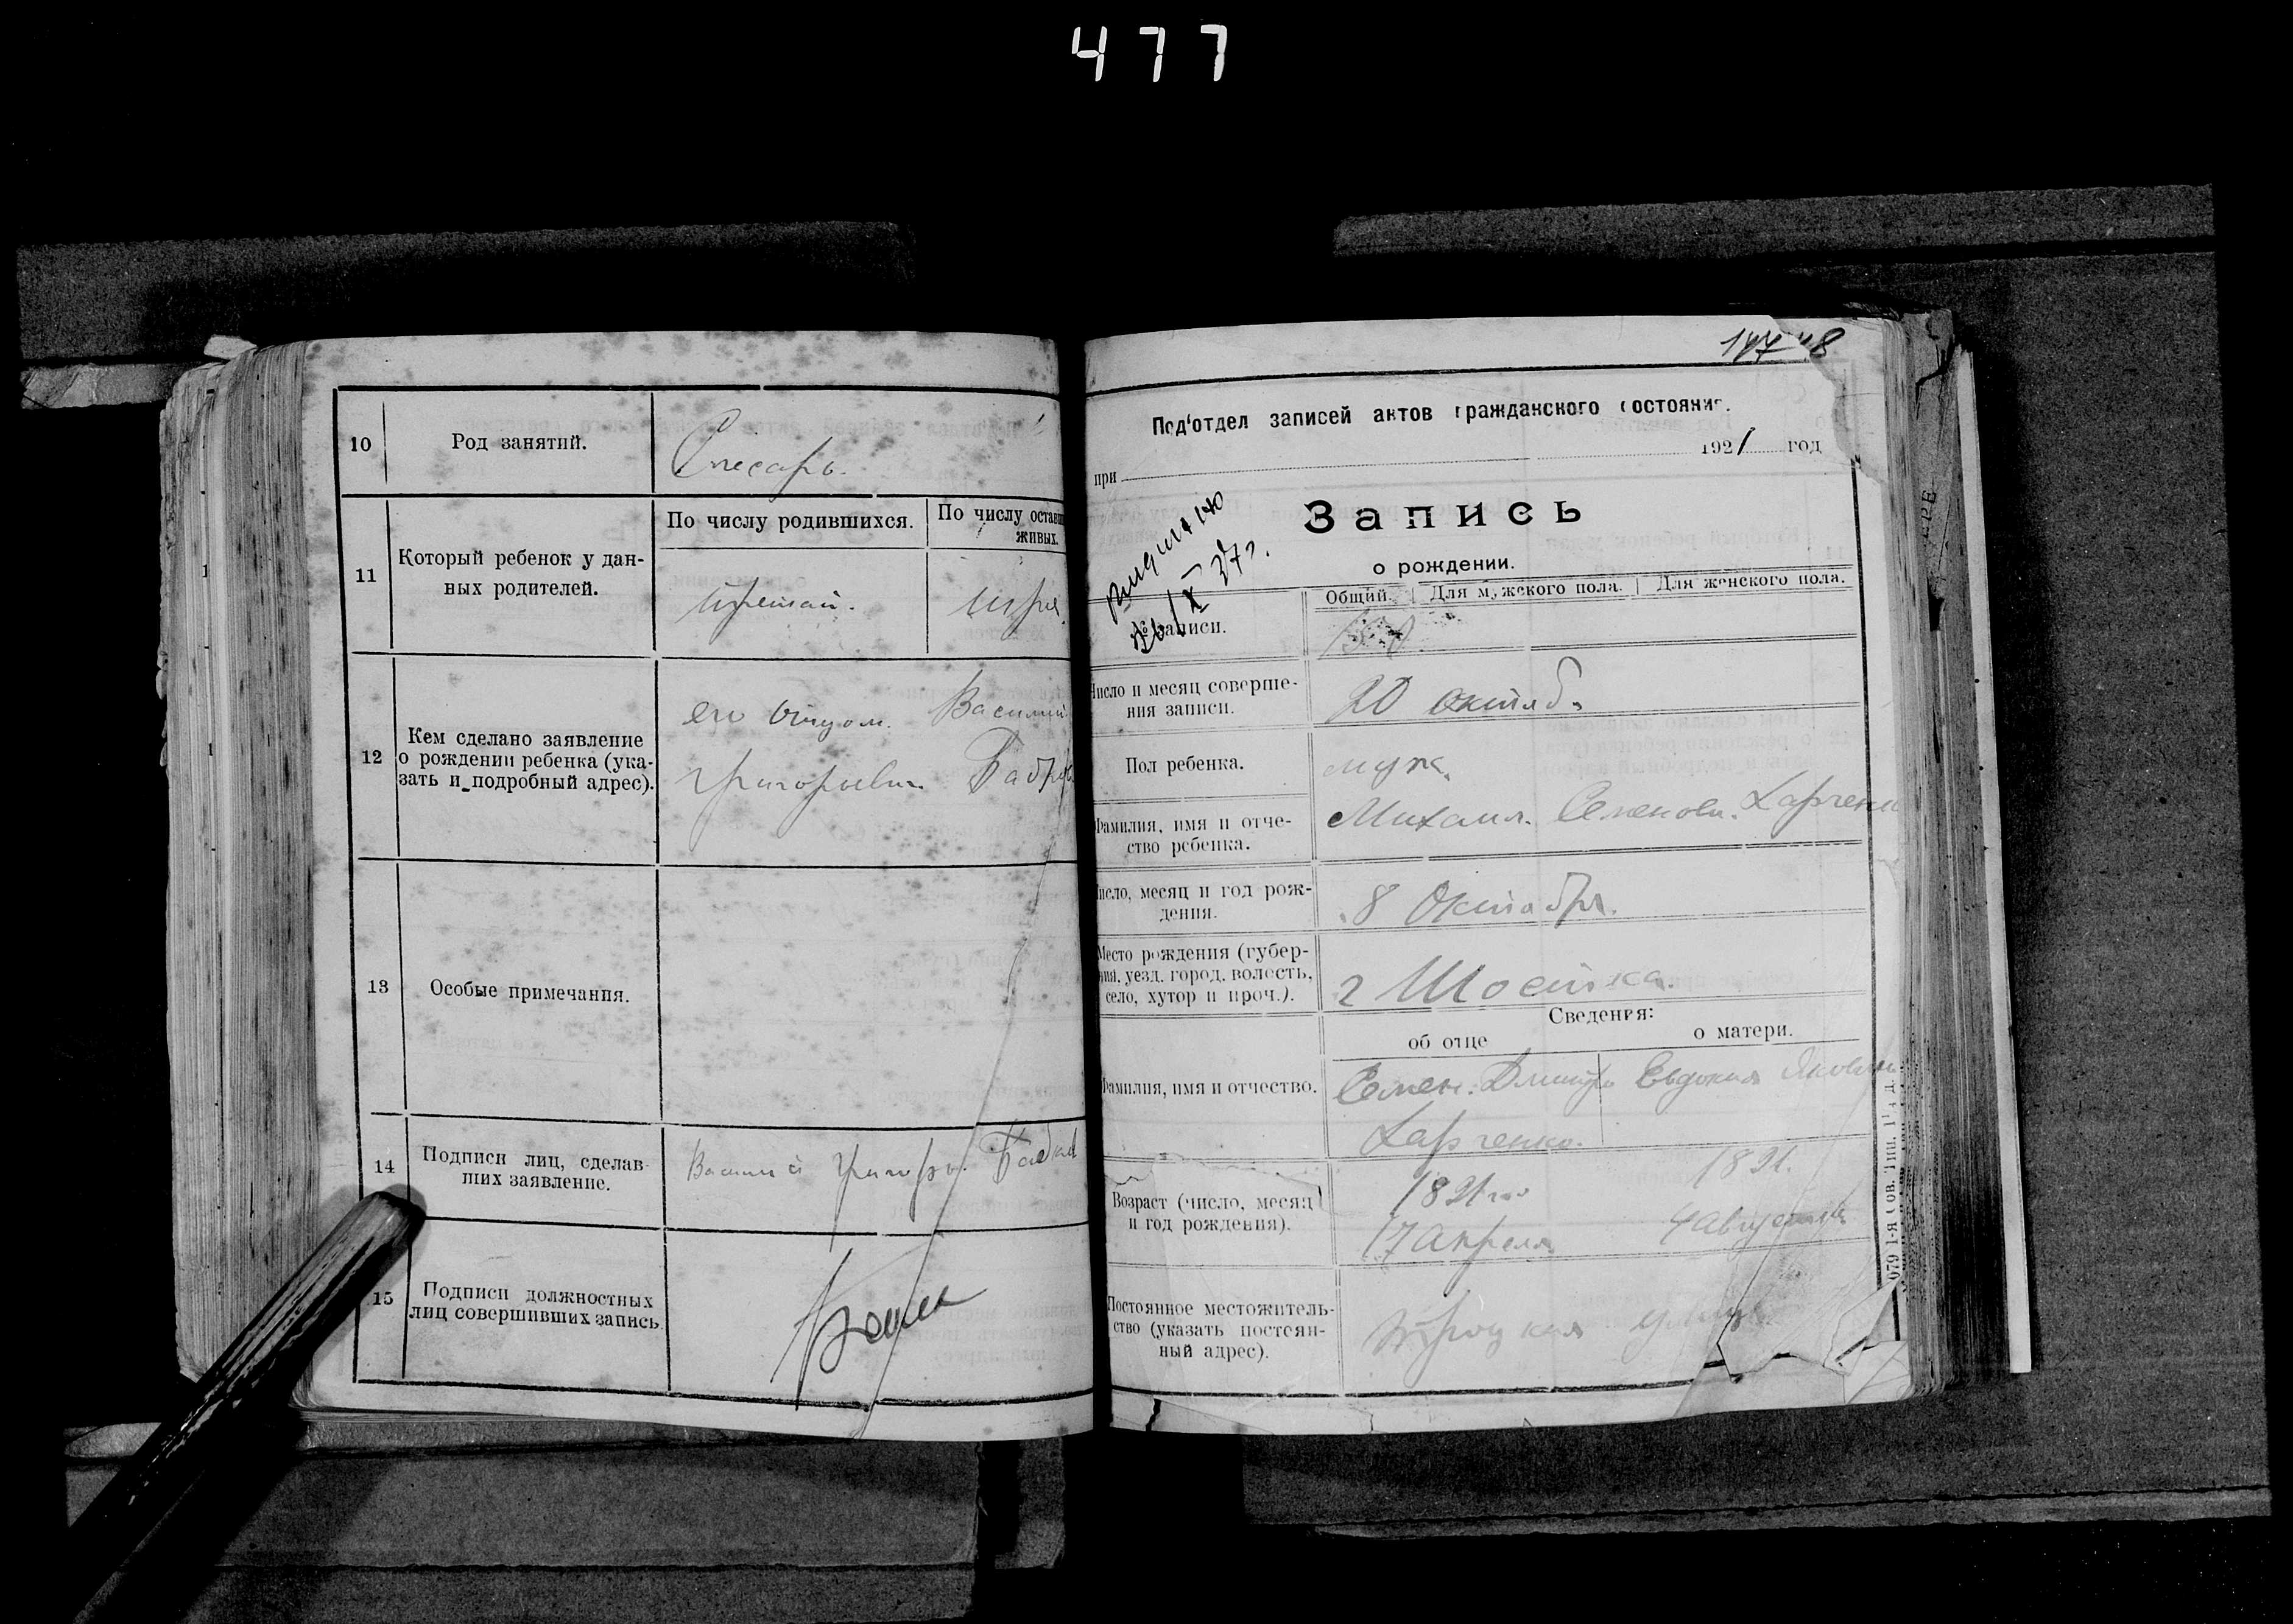 477
10
Род занятий.
Слесарь.
11
Который ребенок у дан-
ных родителей.
По числу родившихся.
По числу оставш
живых.
третий.
12
Кем сделано заявление
о рождении ребенка (ука-
зать и подробный адрес).
его отцом. Василий
Григорьевич
13
Особые примечания.
14
Подписи лиц, сделав-
ших заявление.
Василий Григорь.
15
Подписи должностных
лиц совершивших запись.
Под'отдел записей актов гражданского состояния.
при
1921 год
Запись
о рождении.
Х 37 г.
№ записи.
Общий. Для мужского пола. Для женского пола.
Число и месяц соверше-
ния записи.
20 октяб.
Пол ребенка.
муж.
Фамилия, имя и отче-
ство ребенка.
Михаил. Семенови. Харченко
Число, месяц и год рож-
дения.
8 Октября.
Место рождения (губер-
ния, уезд, город, волость,
село, хутор и проч.).
г Шостка.
Сведения:
об отце
о матери.
Фамилия, имя и отчество.
Семен. Дмитр
Евдокия Яковлевн
Харченко.
Возраст (число, месяц
и год рождения).
17 Апреля
1891.
4 Августа
Постоянное местожитель-
ство (указать постоян-
ный адрес).